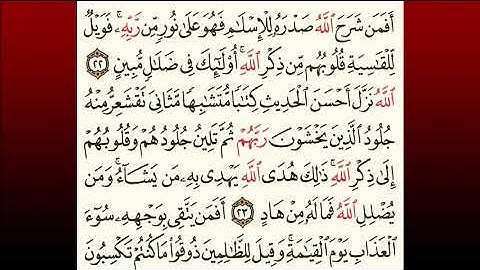 أَفَمَن شَرَحَ ٱللَّهُ صَدۡرَهُۥ لِلۡإِسۡلَٰمِ فَهُوَ عَلَىٰ نُورٖ مِّن رَّبِّهِۦۚ فَوَيۡلٞ
لِّلۡقَٰسِيَةِ قُلُوبُهُم مِّن ذِكۡرِ ٱللَّهِۚ أُوْلَٰٓئِكَ فِي ضَلَٰلٖ مُّبِينٍ ٢٢
ٱللَّهُ نَزَّلَ أَحۡسَنَ ٱلۡحَدِيثِ كِتَٰبٗا مُّتَشَٰبِهٗا مَّثَانِيَ تَقۡشَعِرُّ مِنۡهُ
جُلُودُ ٱلَّذِينَ يَخۡشَوۡنَ رَبَّهُمۡ ثُمَّ تَلِينُ جُلُودُهُمۡ وَقُلُوبُهُمۡ
إِلَىٰ ذِكۡرِ ٱللَّهِۚ ذَٰلِكَ هُدَى ٱللَّهِ يَهۡدِي بِهِۦ مَن يَشَآءُۚ وَمَن
يُضۡلِلِ ٱللَّهُ فَمَا لَهُۥ مِنۡ هَادٍ ٢٣ أَفَمَن يَتَّقِي بِوَجۡهِهِۦ سُوٓءَ
ٱلۡعَذَابِ يَوۡمَ ٱلۡقِيَٰمَةِۚ وَقِيلَ لِلظَّٰلِمِينَ ذُوقُواْ مَا كُنتُمۡ تَكۡسِبُونَ